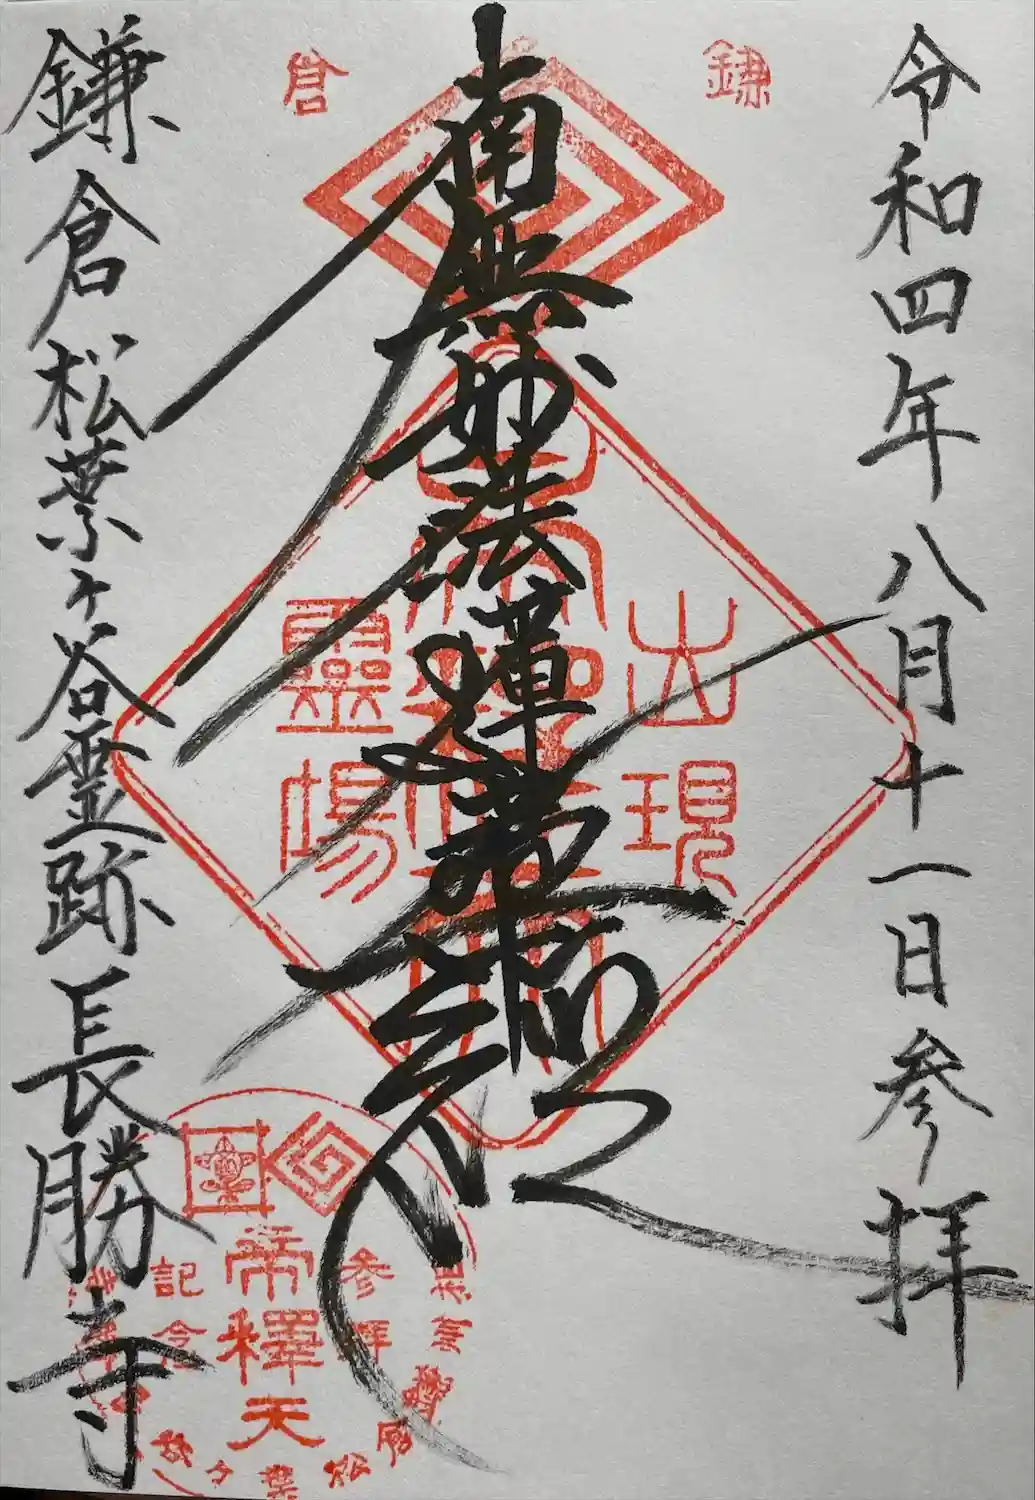 令和四年八月十一日参拝
鎌倉
南無妙法蓮華経
出現
帝釋天
靈場
鎌倉松葉ヶ谷霊跡長勝寺
参拝
帝釋天
記念
松葉ヶ谷